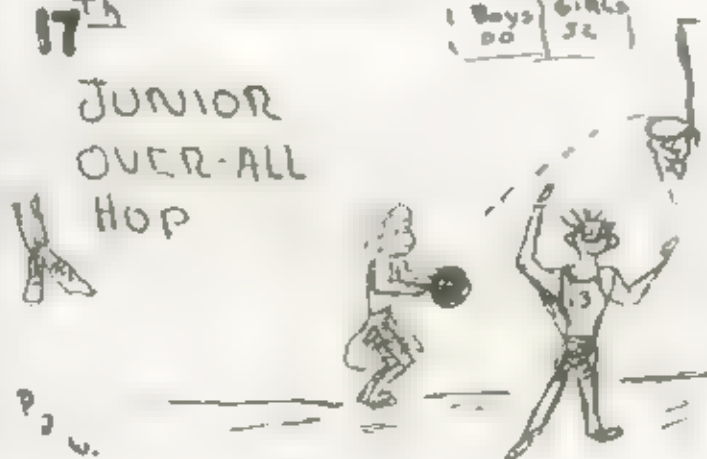 17th
Boys GIRLS
00 52
JUNIOR
OVER-ALL
HOP
13
P
J
W.